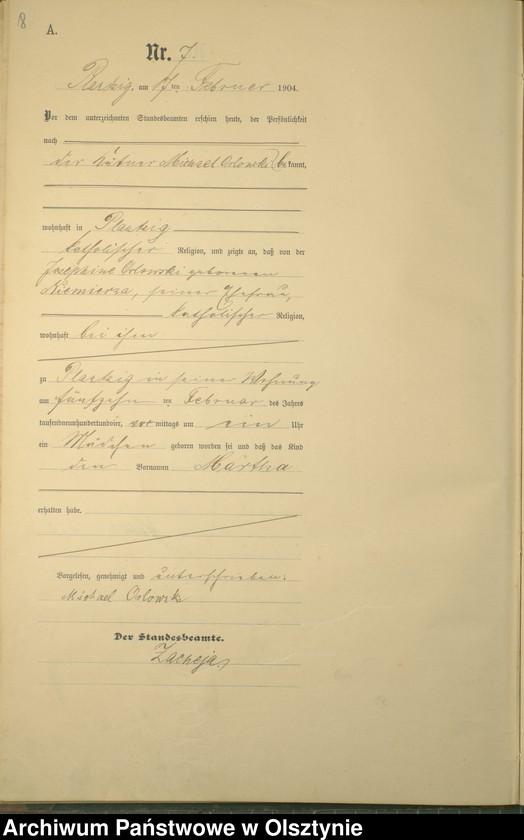 8
A.
Nr. 7.
am 17ten Februar 1904.
Vor dem unterzeichneten Standesbeamten erschien heute, der Persönlichkeit
nach
der Kätner Michael Orlowski bekannt,
wohnhaft in Plautzig
katholischer Religion, und zeigte an, daß von der
Josephine Orlowski geborenen
Niemierza, seiner Ehefrau,
katholischer Religion,
wohnhaft bei ihm
zu Plautzig in seiner Wohnung
am fünfzehnten Februar des Jahres
tausendneunhundertundvier, vormittags um ein Uhr
ein Mädchen geboren worden sei und daß das Kind
den Vornamen Martha
erhalten habe.
Vorgelesen, genehmigt und unterschrieben:
Michael Orlowski
Der Standesbeamte.
Zacheja
Archiwum Państwowe w Olsztynie